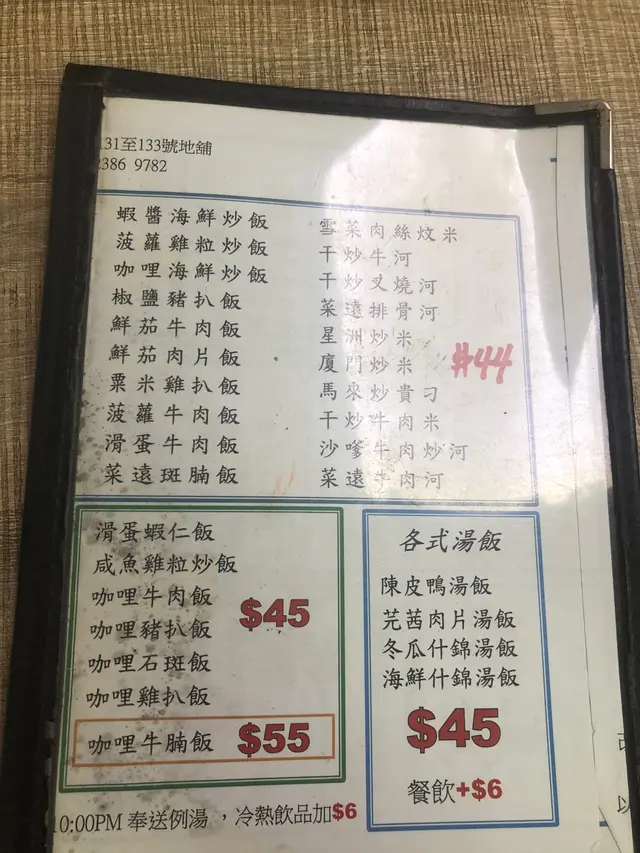 131至133號地舖
2386 9782
蝦醬海鮮炒飯
菠蘿雞粒炒飯
咖哩海鮮炒飯
椒鹽豬扒飯
鮮茄牛肉飯
鮮茄肉片飯
粟米雞扒飯
菠蘿牛肉飯
滑蛋牛肉飯
菜遠斑腩飯
雪菜肉絲炆米
干炒牛河
干炒叉燒河
菜遠排骨河
星洲炒米
廈門炒米
馬來炒貴刁
干炒牛肉米
沙嗲牛肉炒河
菜遠牛肉河
$44
滑蛋蝦仁飯
咸魚雞粒炒飯
咖哩牛肉飯
咖哩豬扒飯
咖哩石斑飯
咖哩雞扒飯
$45
咖哩牛腩飯 $55
各式湯飯
陳皮鴨湯飯
芫茜肉片湯飯
冬瓜什錦湯飯
海鮮什錦湯飯
$45
餐飲+$6
0:00PM 奉送例湯，冷熱飲品加$6
以